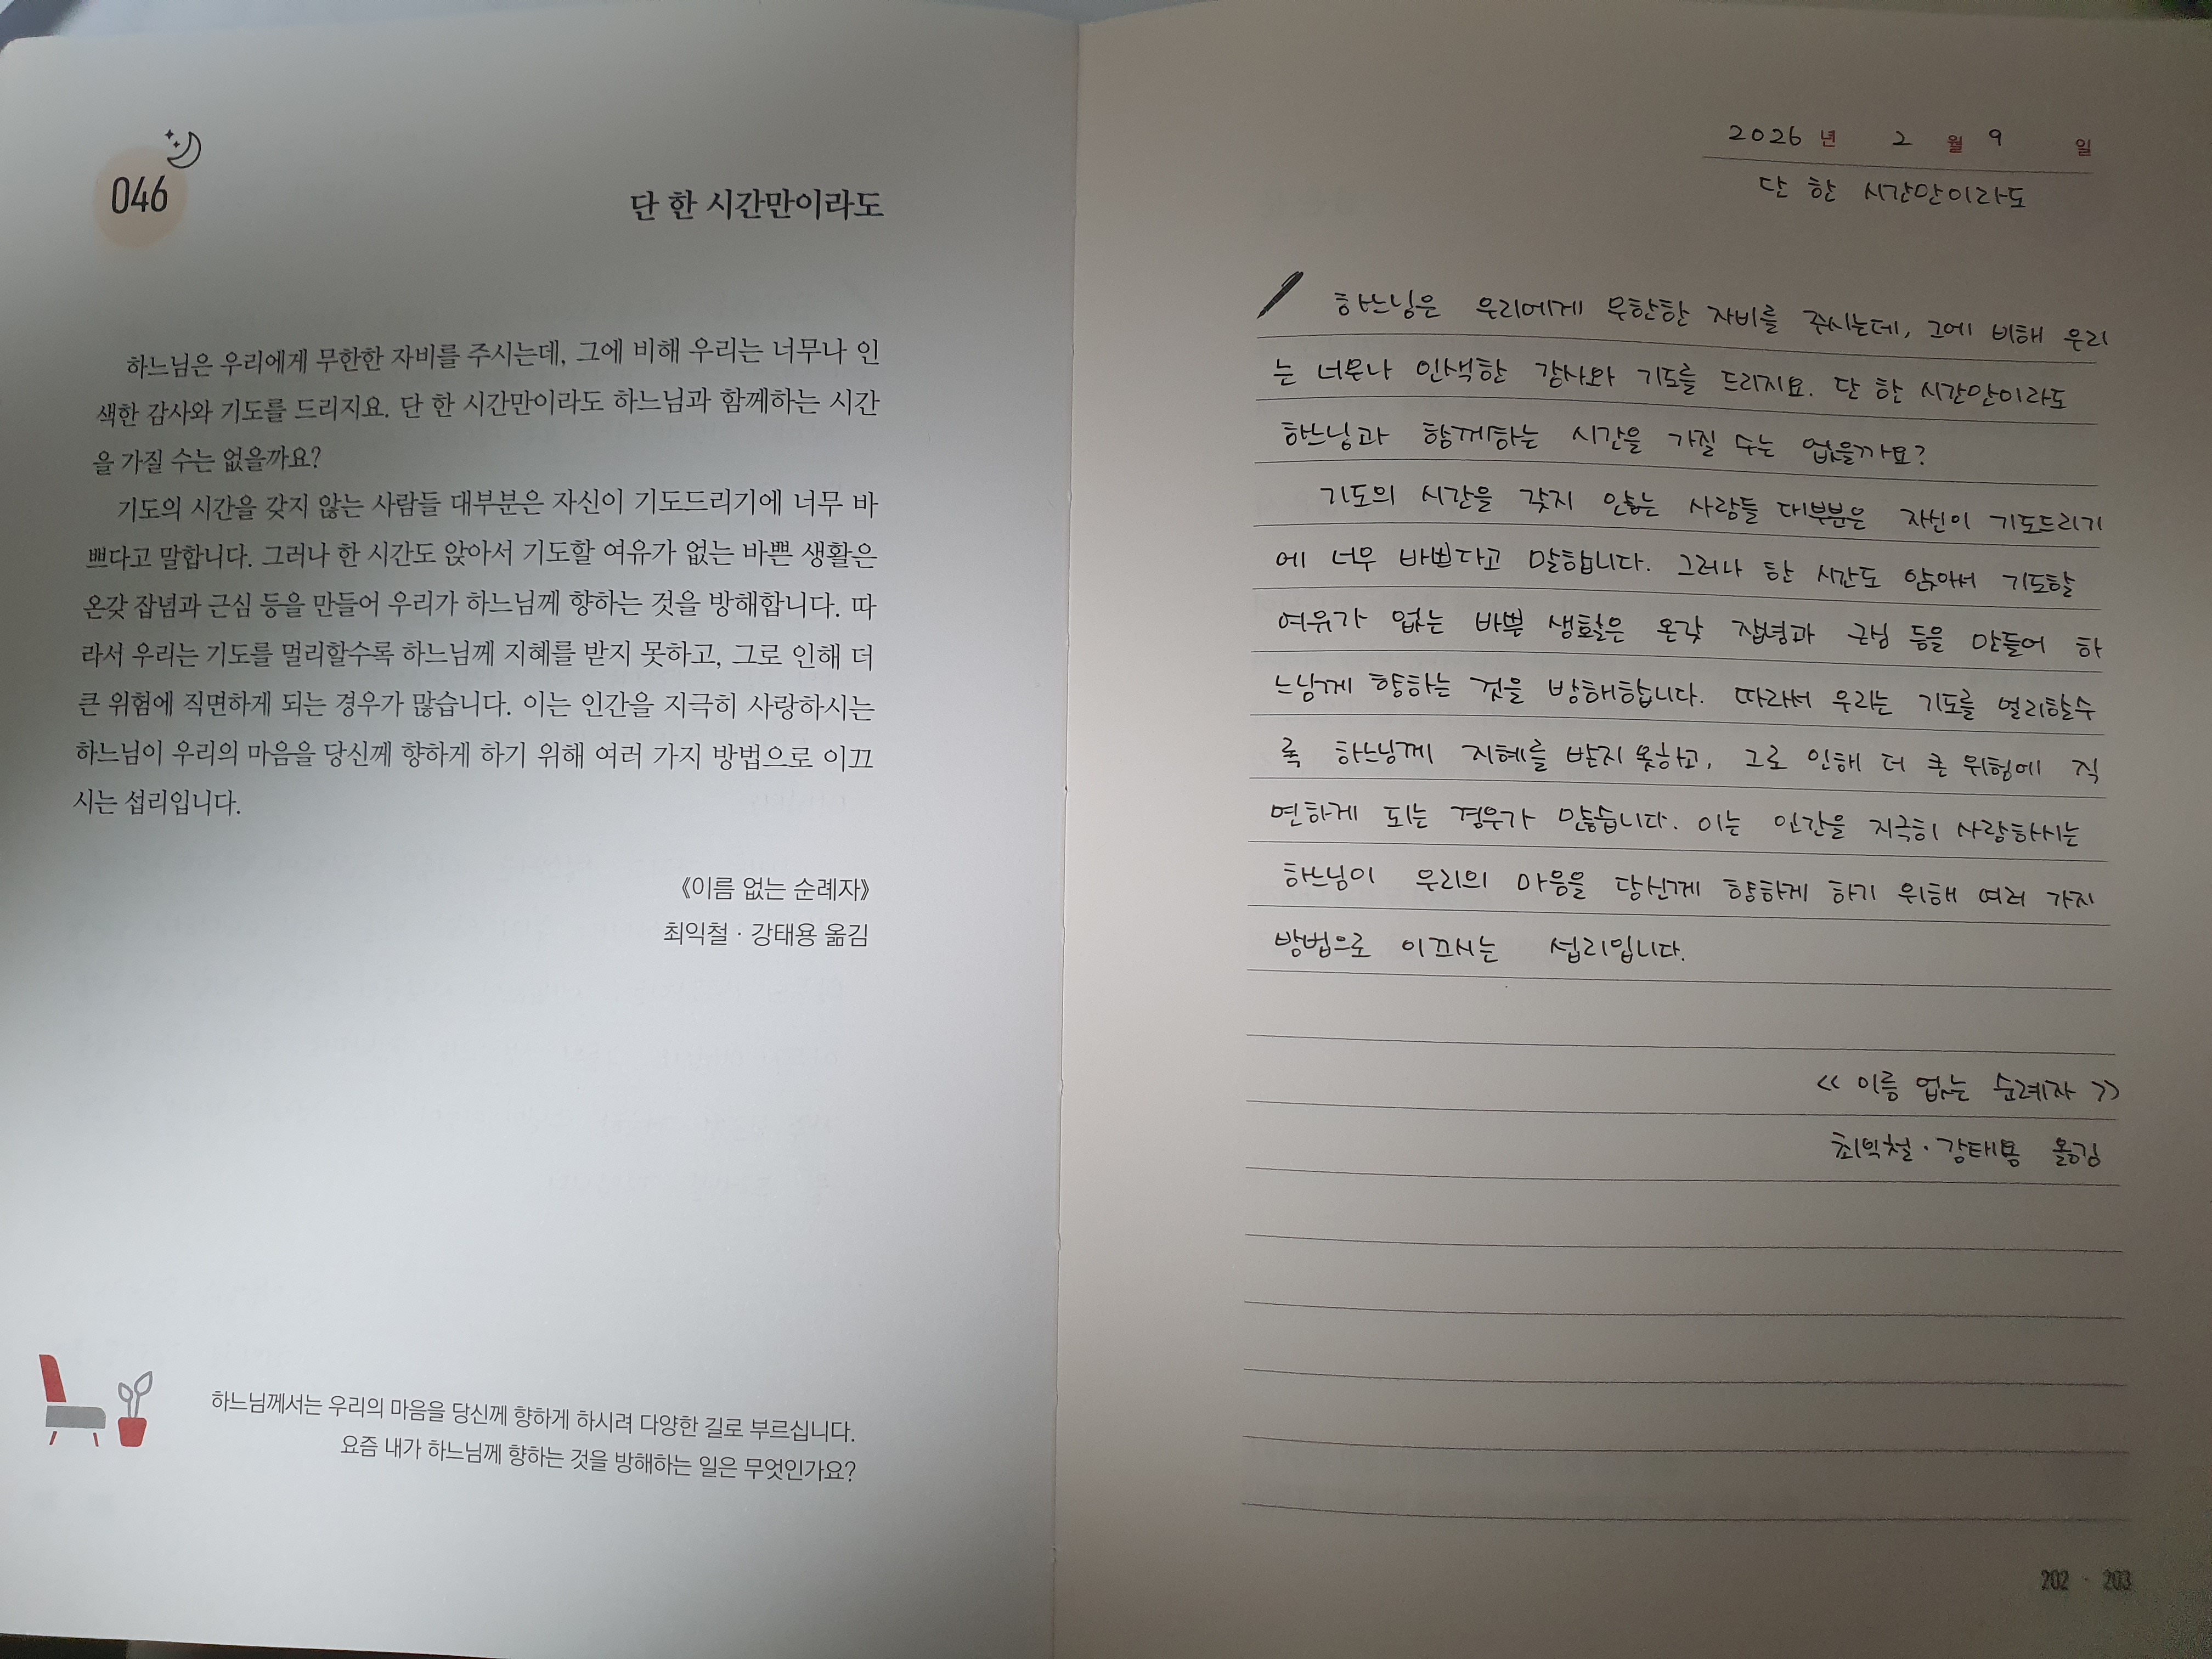 046
단 한 시간만이라도
하느님은 우리에게 무한한 자비를 주시는데, 그에 비해 우리는 너무나 인
색한 감사와 기도를 드리지요. 단 한 시간만이라도 하느님과 함께하는 시간
을 가질 수는 없을까요?
기도의 시간을 갖지 않는 사람들 대부분은 자신이 기도드리기에 너무 바
쁘다고 말합니다. 그러나 한 시간도 앉아서 기도할 여유가 없는 바쁜 생활은
온갖 잡념과 근심 등을 만들어 우리가 하느님께 향하는 것을 방해합니다. 따
라서 우리는 기도를 멀리할수록 하느님께 지혜를 받지 못하고, 그로 인해 더
큰 위험에 직면하게 되는 경우가 많습니다. 이는 인간을 지극히 사랑하시는
하느님이 우리의 마음을 당신께 향하게 하기 위해 여러 가지 방법으로 이끄
시는 섭리입니다.
《이름 없는 순례자》
최익철 · 강태용 옮김
하느님께서는 우리의 마음을 당신께 향하게 하시려 다양한 길로 부르십니다.
요즘 내가 하느님께 향하는 것을 방해하는 일은 무엇인가요?
2026 년 2 월 9 일
단 한 시간만이라도
하느님은 우리에게 무한한 자비를 주시는데, 그에 비해 우리
는 너무나 인색한 감사와 기도를 드리지요. 단 한 시간만이라도
하느님과 함께하는 시간을 가질 수는 없을까요?
기도의 시간을 갖지 않는 사람들 대부분은 자신이 기도드리기
에 너무 바쁘다고 말합니다. 그러나 한 시간도 앉아서 기도할
여유가 없는 바쁜 생활은 온갖 잡념과 근심 등을 만들어 하
느님께 향하는 것을 방해합니다. 따라서 우리는 기도를 멀리할수
록 하느님께 지혜를 받지 못하고, 그로 인해 더 큰 위험에 직
면하게 되는 경우가 많습니다. 이는 인간을 지극히 사랑하시는
하느님이 우리의 마음을 당신께 향하게 하기 위해 여러 가지
방법으로 이끄시는 섭리입니다.
<< 이름 없는 순례자 >>
최익철 · 강태용 옮김
202 · 203